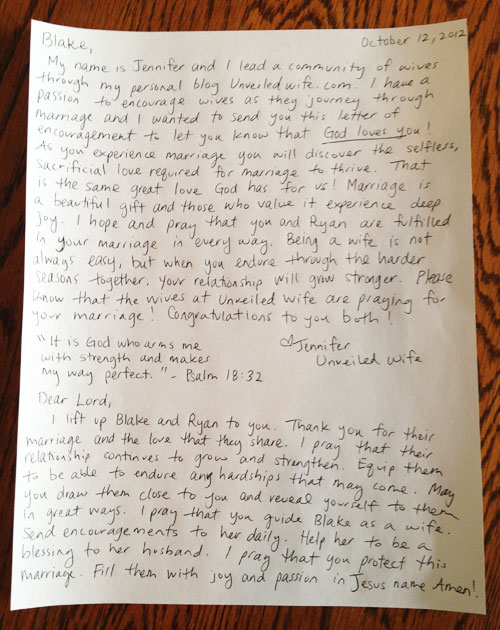 Blake, October 12, 2012
My name is Jennifer and I lead a community of wives
through my personal blog Unveiledwife.com. I have a
passion to encourage wives as they journey through
marriage and I wanted to send you this letter of
encouragement to let you know that God loves you!
As you experience marriage you will discover the selfless,
sacrificial love required for marriage to thrive. That
is the same great love God has for us! Marriage is
a beautiful gift and those who value it experience deep
joy. I hope and pray that you and Ryan are fulfilled
in your marriage in every way. Being a wife is not
always easy, but when you endure through the harder
seasons together, your relationship will grow stronger. Please
know that the wives at Unveiled Wife are praying for
your marriage! Congratulations to you both!
"It is God who arms me
with strength and makes
my way perfect." - Psalm 18:32
♡Jennifer
Unveiled Wife
Dear Lord,
I lift up Blake and Ryan to you. Thank you for their
marriage and the love that they share. I pray that their
relationship continues to grow and strengthen. Equip them
to be able to endure any hardships that may come. May
you draw them close to you and reveal yourself to them
in great ways. I pray that you guide Blake as a wife.
Send encouragements to her daily. Help her to be a
blessing to her husband. I pray that you protect this
marriage. Fill them with joy and passion in Jesus name Amen!